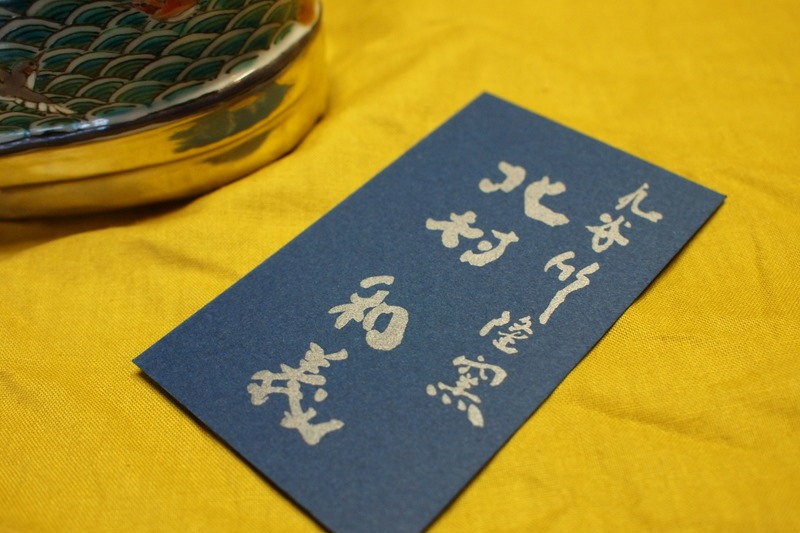 九谷 隆窯
北村 和義